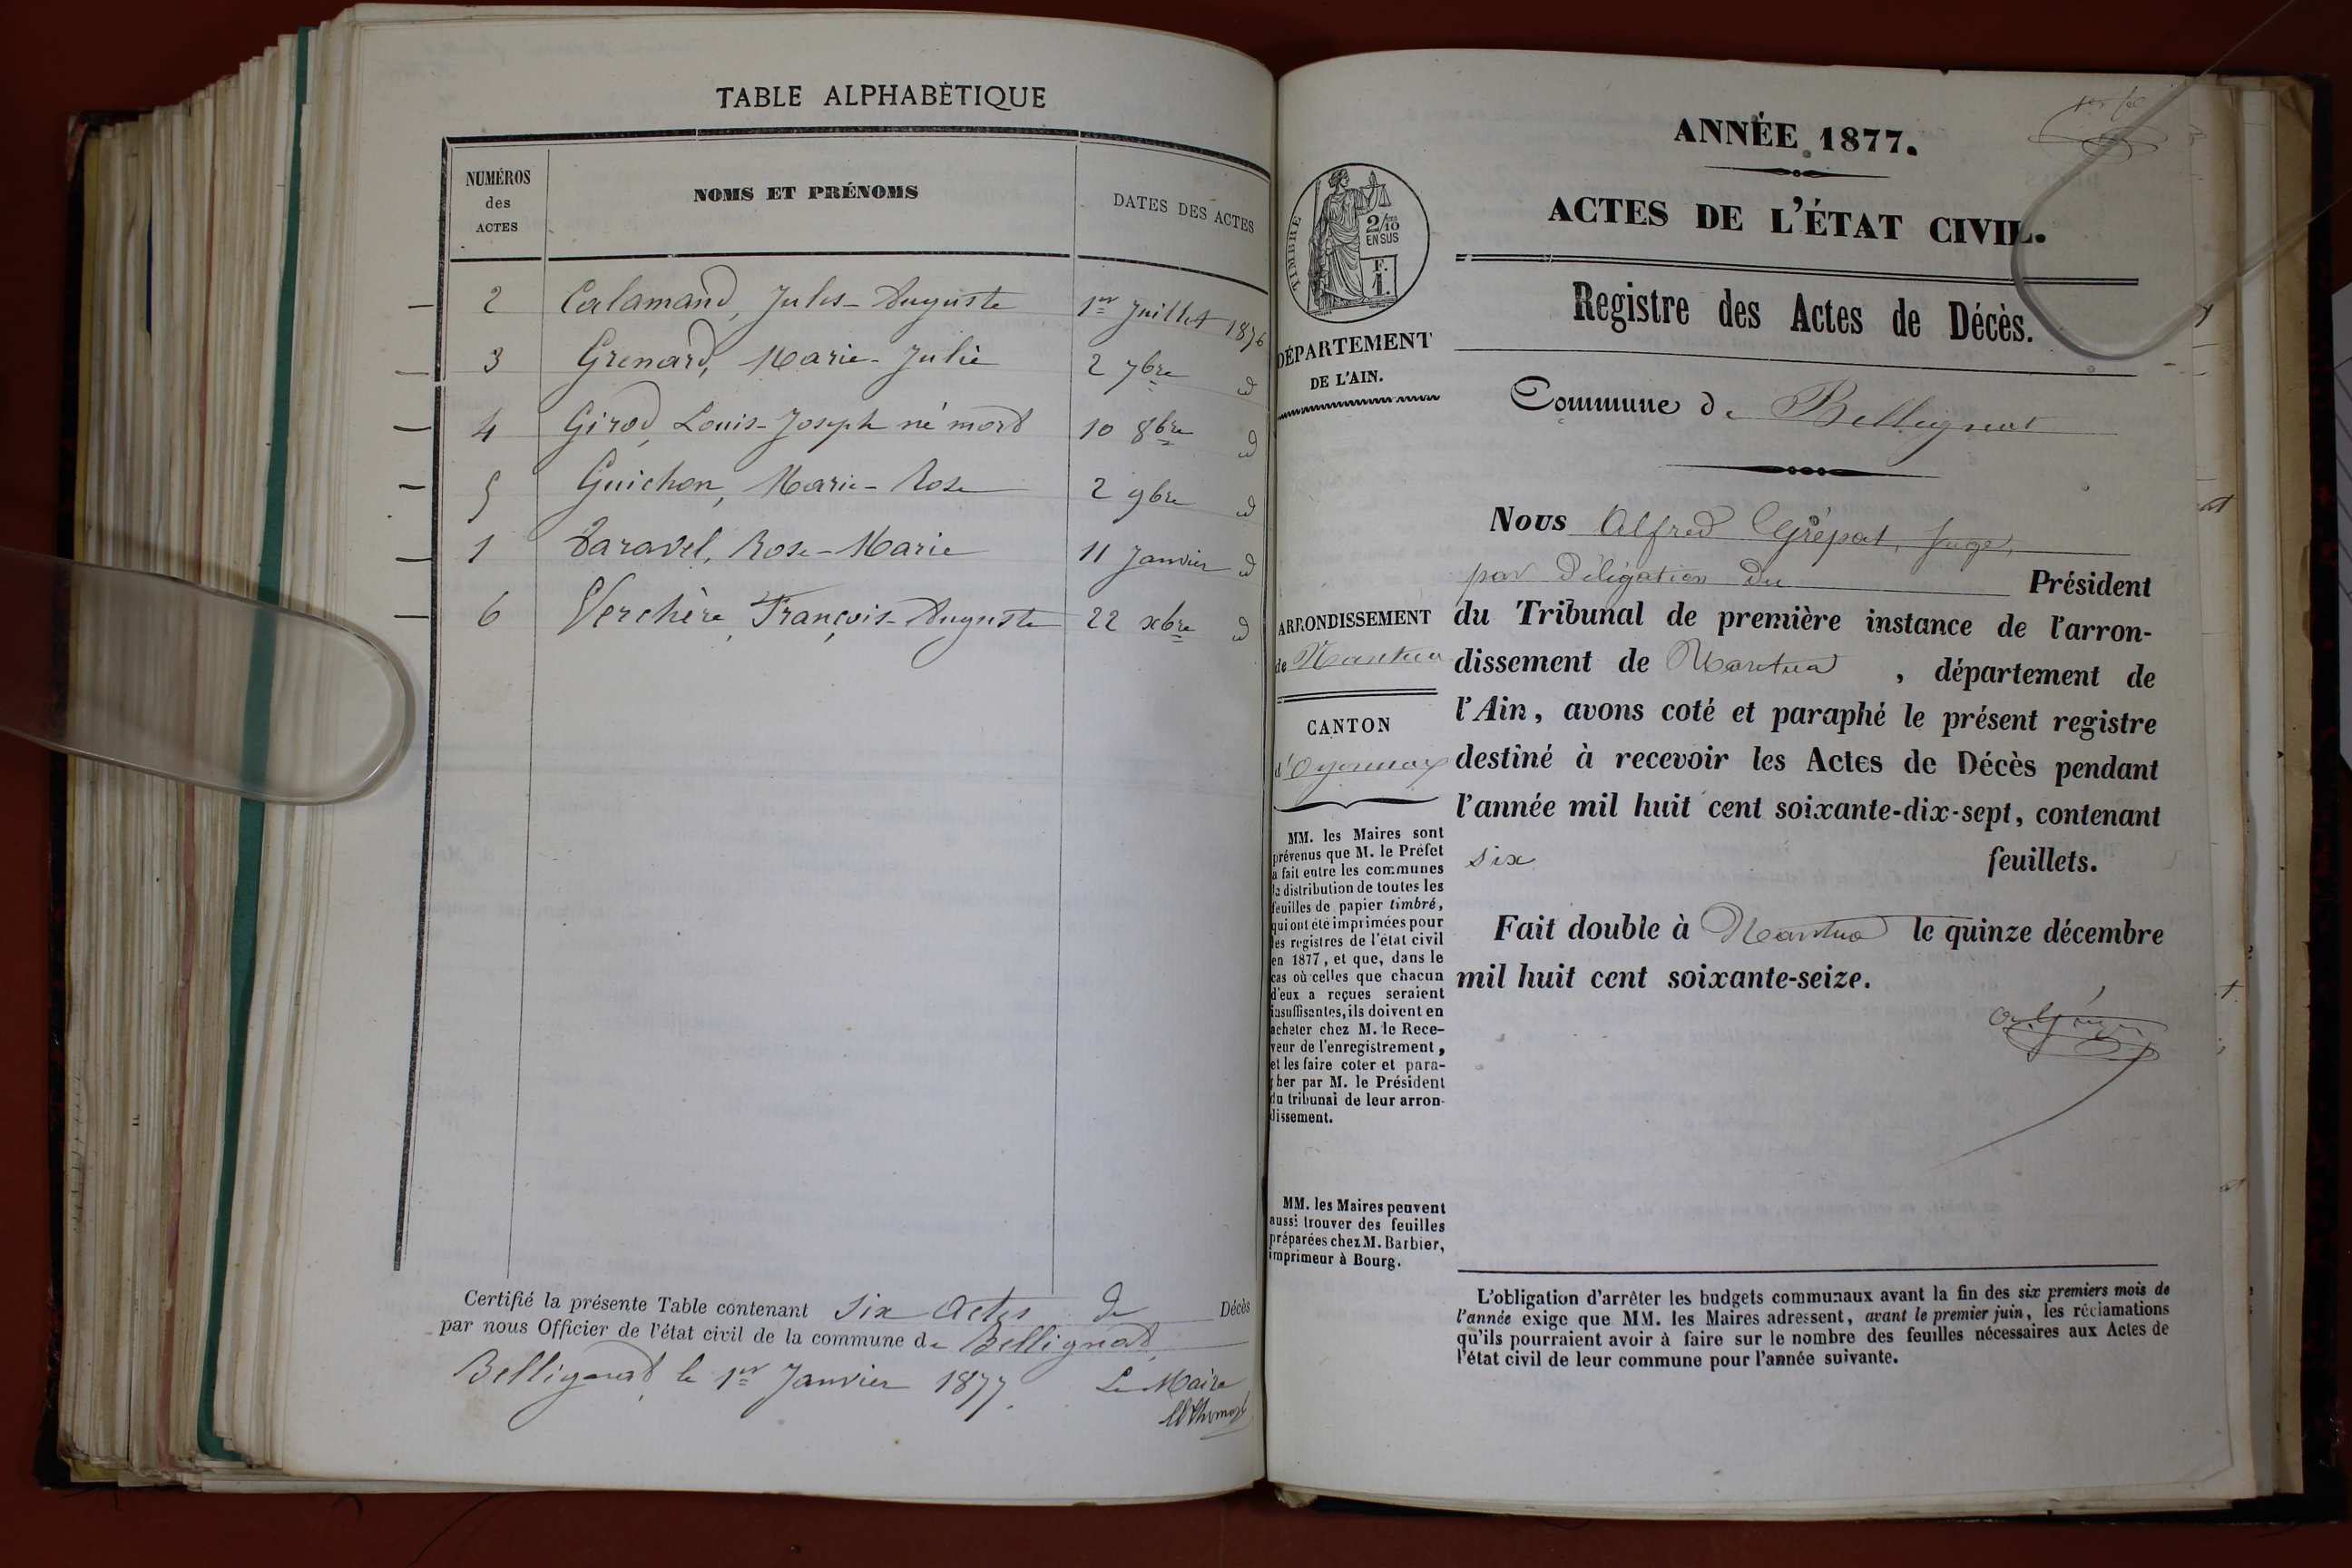 TABLE ALPHABÉTIQUE
NUMÉROS
des
ACTES
NOMS ET PRÉNOMS
DATES DES ACTES
2 Calamand, Jules-Auguste 1er Juillet 1876
3 Grenard, Marie-Julie 2 7bre d
4 Girod, Louis-Joseph né mort 10 8bre d
5 Guichon, Marie-Rose 2 9bre d
1 Taravel, Rose-Marie 11 Janvier d
6 Verchère, François-Auguste 22 xbre d
Certifié la présente Table contenant six Actes de Décès
par nous Officier de l'état civil de la commune de Bellignat
Bellignat, le 1er Janvier 1877. Le Maire
TIMBRE
2/10
EN SUS
F.
1.
DÉPARTEMENT
DE L'AIN.
ARRONDISSEMENT
de Nantua
CANTON
d'Oyonnax
MM. les Maires sont
prévenus que M. le Préfet
a fait entre les communes
la distribution de toutes les
feuilles de papier timbré,
qui ont été imprimées pour
les registres de l'état civil
en 1877, et que, dans le
cas où celles que chacun
d'eux a reçues seraient
insuffisantes, ils doivent en
acheter chez M. le Rece-
veur de l'enregistrement,
et les faire coter et para-
pher par M. le Président
du tribunal de leur arron-
dissement.
MM. les Maires peuvent
aussi trouver des feuilles
préparées chez M. Barbier,
imprimeur à Bourg.
ANNÉE 1877.
ACTES DE L'ÉTAT CIVIL.
Registre des Actes de Décès.
Commune de Bellignat
Nous Alfred Grépat, Juge,
par Délégation du Président
du Tribunal de première instance de l'arron-
dissement de Nantua, département de
l'Ain, avons coté et paraphé le présent registre
destiné à recevoir les Actes de Décès pendant
l'année mil huit cent soixante-dix-sept, contenant
six feuillets.
Fait double à Nantua le quinze décembre
mil huit cent soixante-seize.
L'obligation d'arrêter les budgets communaux avant la fin des six premiers mois de
l'année exige que MM. les Maires adressent, avant le premier juin, les réclamations
qu'ils pourraient avoir à faire sur le nombre des feuilles nécessaires aux Actes de
l'état civil de leur commune pour l'année suivante.